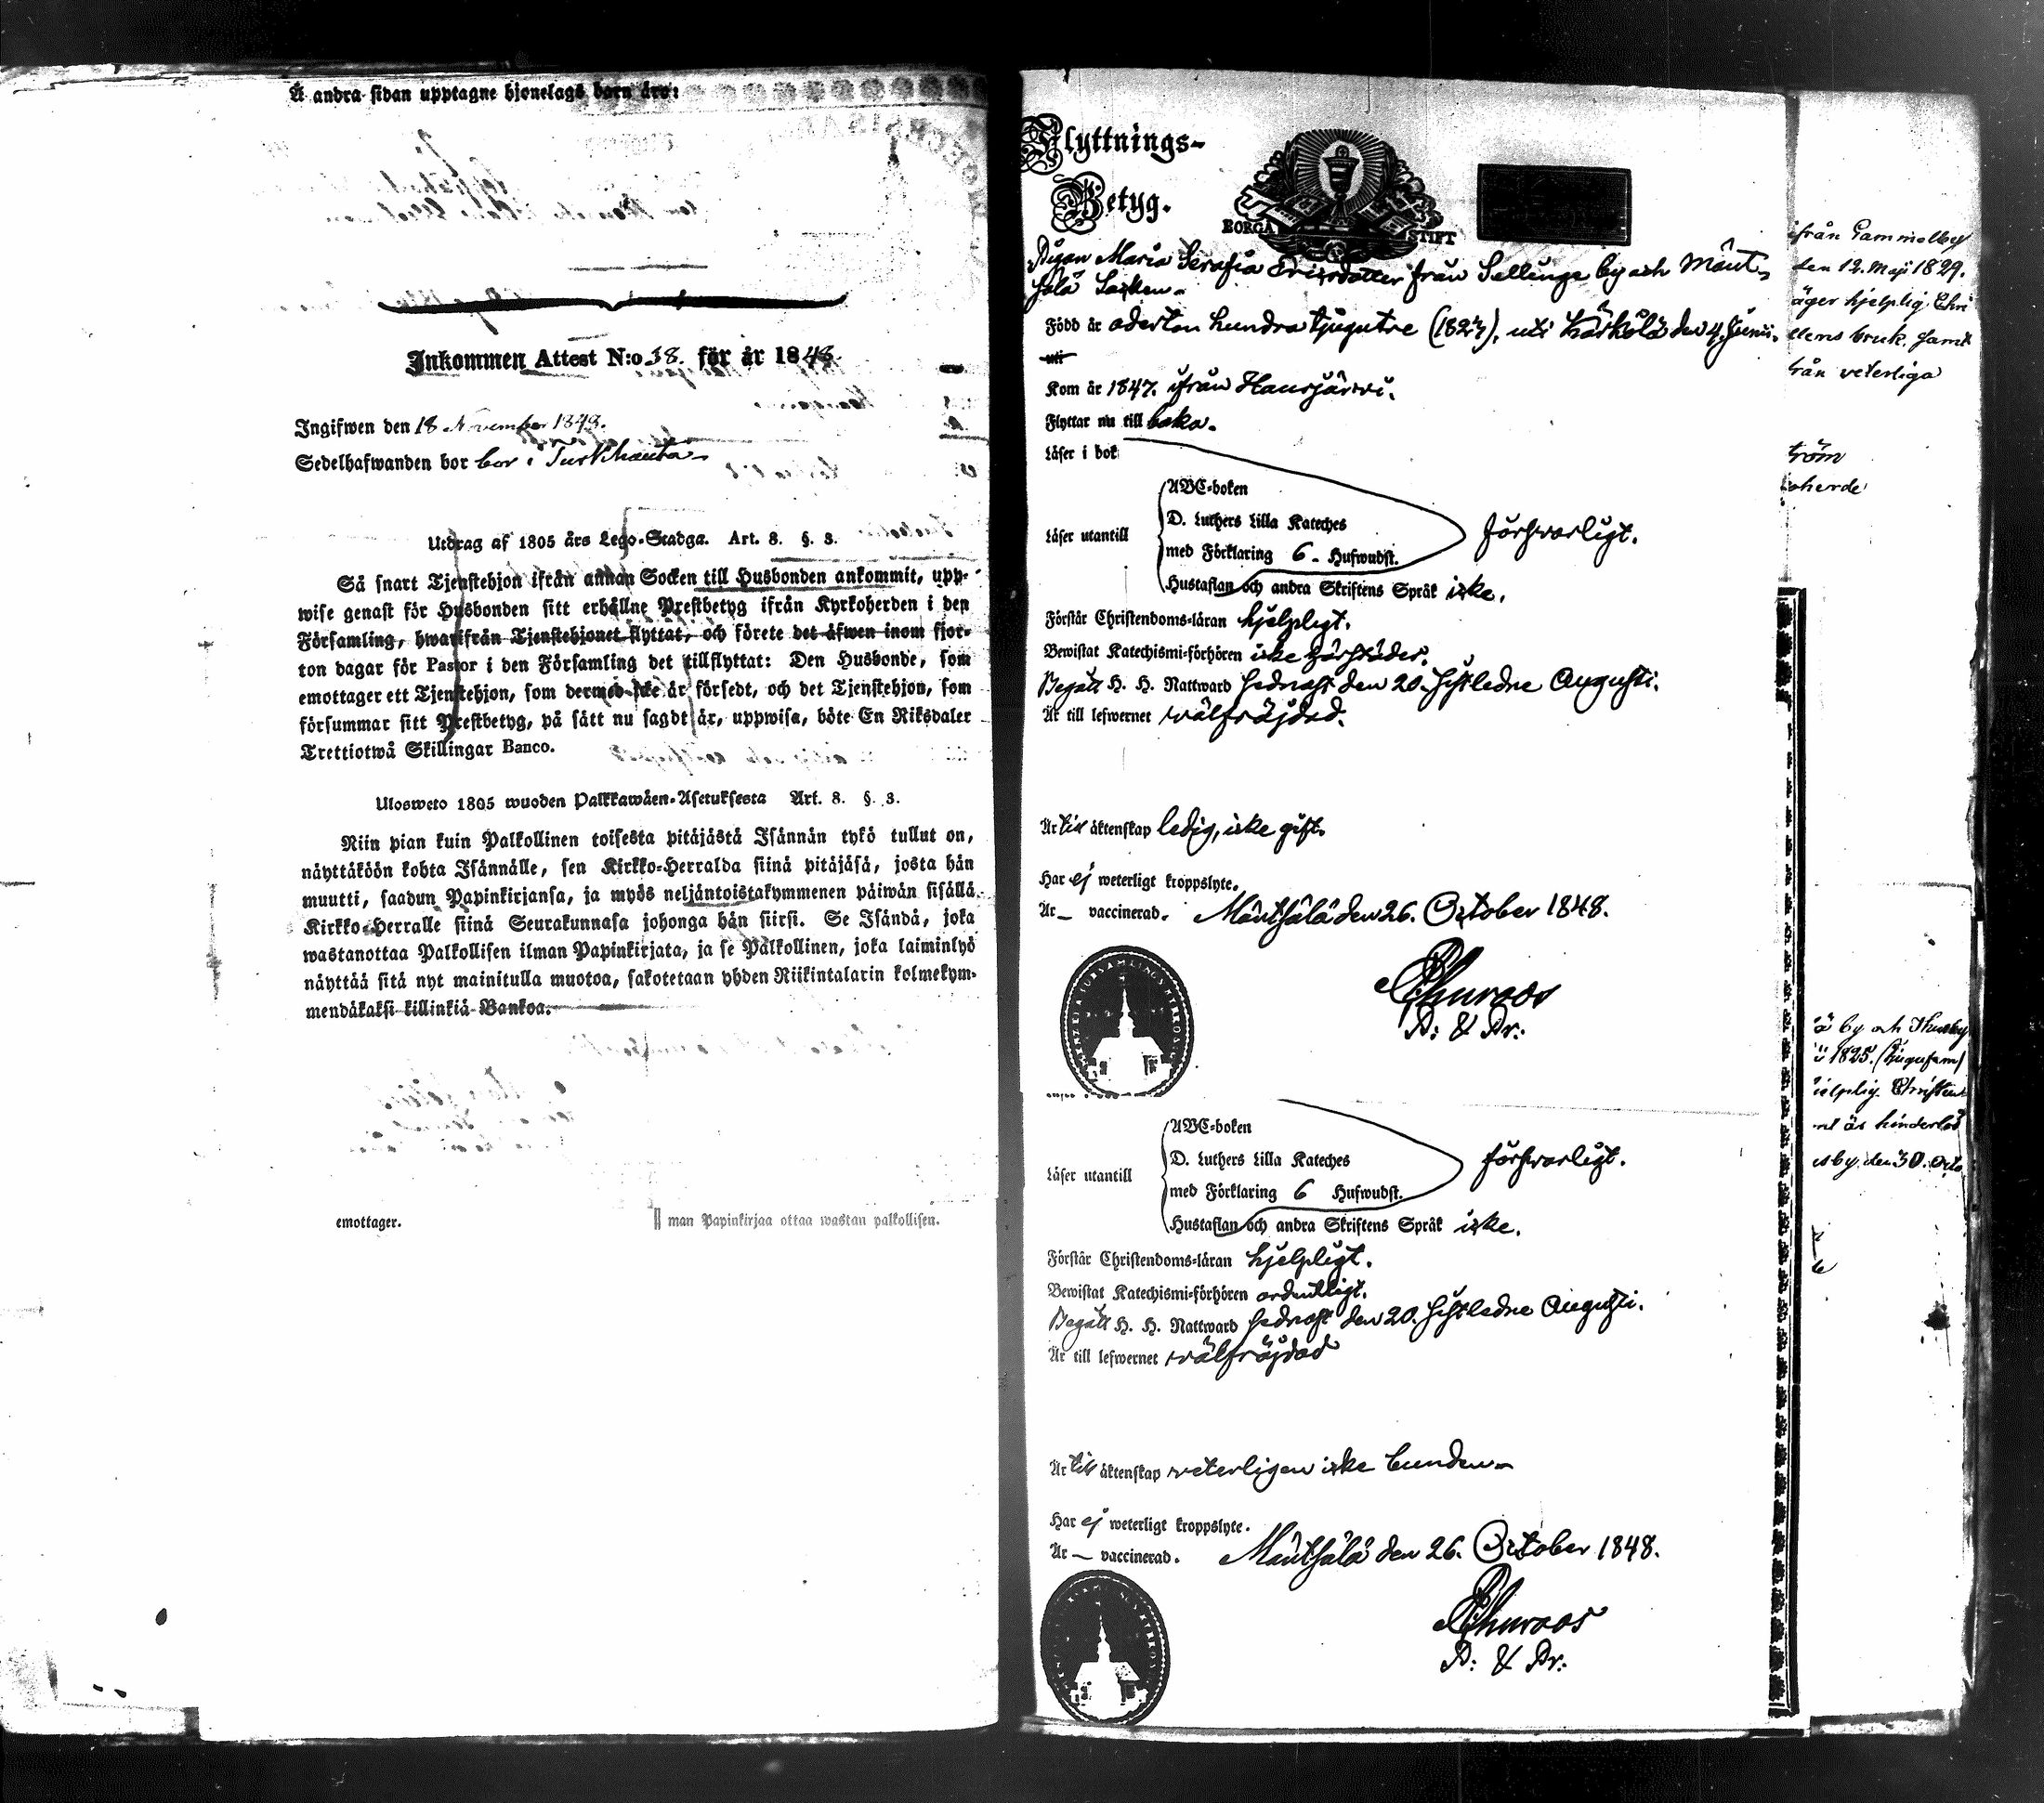 Å andra sidan upptagne hjonelags barn äro:
Inkommen Attest N:o 38. för år 1848.
Ingifwen den 18 November 1848.
Sedelhafwanden bor bor i Turkhauta
Utdrag af 1805 års Lego-Stadga. Art. 8. §. 3.
Så snart Tjenstehjon ifrån annan Socken till Husbonden ankommit, upp-
wise genast för Husbonden sitt erhållne Prestbetyg ifrån Kyrkoherden i den
Församling, hwarifrån Tjenstehjonet flyttat, och förete det äfwen inom fjor-
ton dagar för Pastor i den Församling det tillflyttat: Den Husbonde, som
emottager ett Tjenstehjon, som dermed icke är försedt, och det Tjenstehjon, som
försummar sitt Prestbetyg, på sätt nu sagdt är, uppwisa, böte En Riksdaler
Trettiotwå Skillingar Banco.
Ulosweto 1805 wuoden Palkkawäen-Asetuksesta Art. 8. §. 3.
Niin pian kuin Palkollinen toisesta pitäjästä Isännän tykö tullut on,
näyttäköön kohta Isännälle, sen Kirkko-Herralda siinä pitäjäsä, josta hän
muutti, saadun Papinkirjansa, ja myös neljäntoistakymmenen päiwän sisällä
Kirkko-Herralle siinä Seurakunnasa johonga hän siirsi. Se Isändä, joka
wastanottaa Palkollisen ilman Papinkirjata, ja se Palkollinen, joka laiminlyö
näyttää sitä nyt mainitulla muotoa, sakotetaan yhden Riikintalarin kolmekym-
mendäkaksi killinkiä Bankoa.
emottager.
man Papinkirjaa ottaa wastan palkollisen.
Flyttnings-
Betyg.
BORGÅ STIFT
Pigan Maria Serafia Ericsdotter från Sellinge by och Mänt-
sälä Socken.
Född år aderton hundra tjugutre (1823), uti Kärkölä den 4 Junii.
uti
Kom år 1847. ifrån Hausjärwi.
Flyttar nu till baka.
Läser i bok
Läser utantill
ABC-boken
D. Luthers Lilla Kateches
med Förklaring 6 Hufwudst.
försvarligt.
Hustaflan och andra Skriftens Språk icke.
Förstår Christendoms-läran hjelpligt.
Bewistat Katechismi-förhören icke härstädes.
Begått H. H. Nattward sednast den 20. sistledne Augusti.
Är till lefwernet välfräjdad.
Är till äktenskap ledig, icke gift.
Har ej weterligt kroppslyte.
Är — vaccinerad. Mäntsälä den 26. October 1848.
P: & Pr:
Läser utantill
ABC-boken
D. Luthers Lilla Kateches
med Förklaring 6 Hufwudst.
försvarligt.
Hustaflan och andra Skriftens Språk icke.
Förstår Christendoms-läran hjelpligt.
Bewistat Katechismi-förhören ordentligt.
Begått H. H. Nattward sednast den 20. sistledne Augusti.
Är till lefwernet välfräjdad
Är till äktenskap veterligen icke bunden
Har ej weterligt kroppslyte.
Är — vaccinerad. Mäntsälä den 26. October 1848.
P: & Pr:
ifrån Gammelby
den 12. Maji 1829.
äger hjelplig Chri
llens bruk, samt
från veterliga
tröm
oherde
by och Thusby
1825. (tjugufem)
hjelplig Christen
är hinderlös
by den 30. Octo